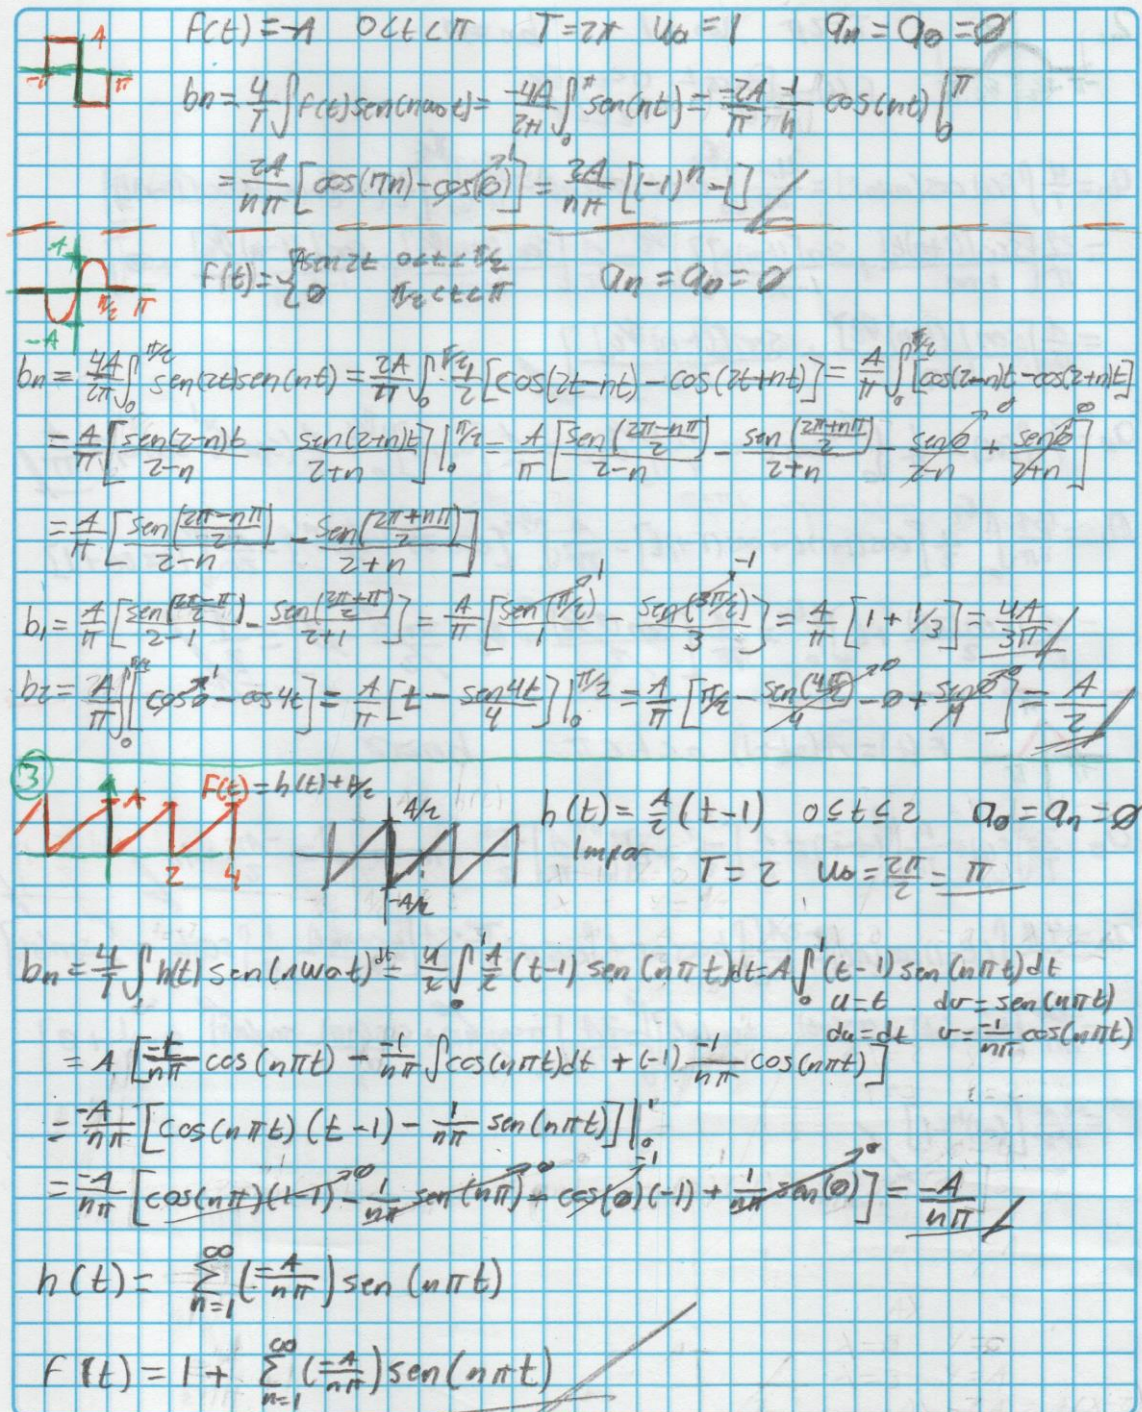 A
-π
π
f(t) = -A 0<t<π T=2π ω₀=1 aₙ = a₀ = 0
bn = 4/T ∫ f(t) sen(nω₀t) = -4A/2π ∫₀^π sen(nt) = -2A/π 1/n cos(nt) |₀^π
= 2A/nπ [cos(πn) - cos(0)] = 2A/nπ [(-1)ⁿ - 1]
A
-A
π/2 π
f(t) = { Asen2t 0<t<π/2
0 π/2<t<π
aₙ = a₀ = 0
bn = 4A/2π ∫₀^π/2 sen(2t)sen(nt) = 2A/π ∫₀^π/2 1/2 [cos(2t-nt) - cos(2t+nt)] = A/π ∫₀^π/2 [cos(2-n)t - cos(2+n)t]
= A/π [sen(2-n)t/2-n - sen(2+n)t/2+n] |₀^π/2 = A/π [sen(2π-nπ/2)/2-n - sen(2π+nπ/2)/2+n - sen0/2-n + sen0/2+n]
= A/π [sen(2π-nπ/2)/2-n - sen(2π+nπ/2)/2+n]
b₁ = A/π [sen(2π-π/2)/2-1 - sen(2π+π/2)/2+1] = A/π [sen(π/2)/1 - sen(3π/2)/3] = A/π [1 + 1/3] = 4A/3π
b₂ = A/π ∫₀^π/2 [cos0 - cos4t] = A/π [t - sen4t/4] |₀^π/2 = A/π [π/2 - sen(4π/2)/4 - 0 + sen0/4] = A/2
3
A
2 4
F(t) = h(t) + A/2
A/2
-A/2
h(t) = A/2 (t-1) 0≤t≤2 a₀ = aₙ = 0
Impar
T = 2 ω₀ = 2π/2 = π
bn = 4/T ∫ h(t) sen(nω₀t)dt = 4/2 ∫₀¹ A/2 (t-1) sen(nπt)dt = A ∫₀¹ (t-1) sen(nπt)dt
u=t dv = sen(nπt)
du=dt v = -1/nπ cos(nπt)
= A [-t/nπ cos(nπt) - -1/nπ ∫cos(nπt)dt + (-1) -1/nπ cos(nπt)]
= -A/nπ [cos(nπt) (t-1) - 1/nπ sen(nπt)] |₀¹
= -A/nπ [cos(nπ)(1-1) - 1/nπ sen(nπ) - cos(0)(-1) + 1/nπ sen(0)] = -A/nπ
h(t) = ∞Σn=1 (-A/nπ) sen(nπt)
F(t) = 1 + ∞Σn=1 (-A/nπ) sen(nπt)